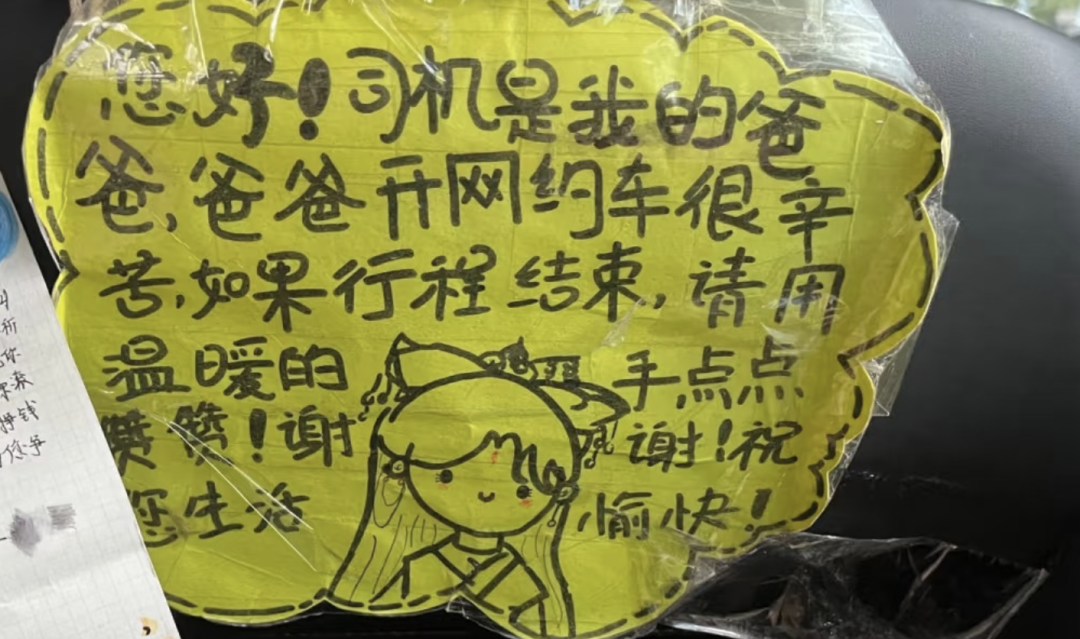 您好！司机是我的爸
爸，爸爸开网约车很辛
苦，如果行程结束，请用
温暖的手点点
赞赞！谢谢！祝
您生活愉快！
你
挣钱
您争